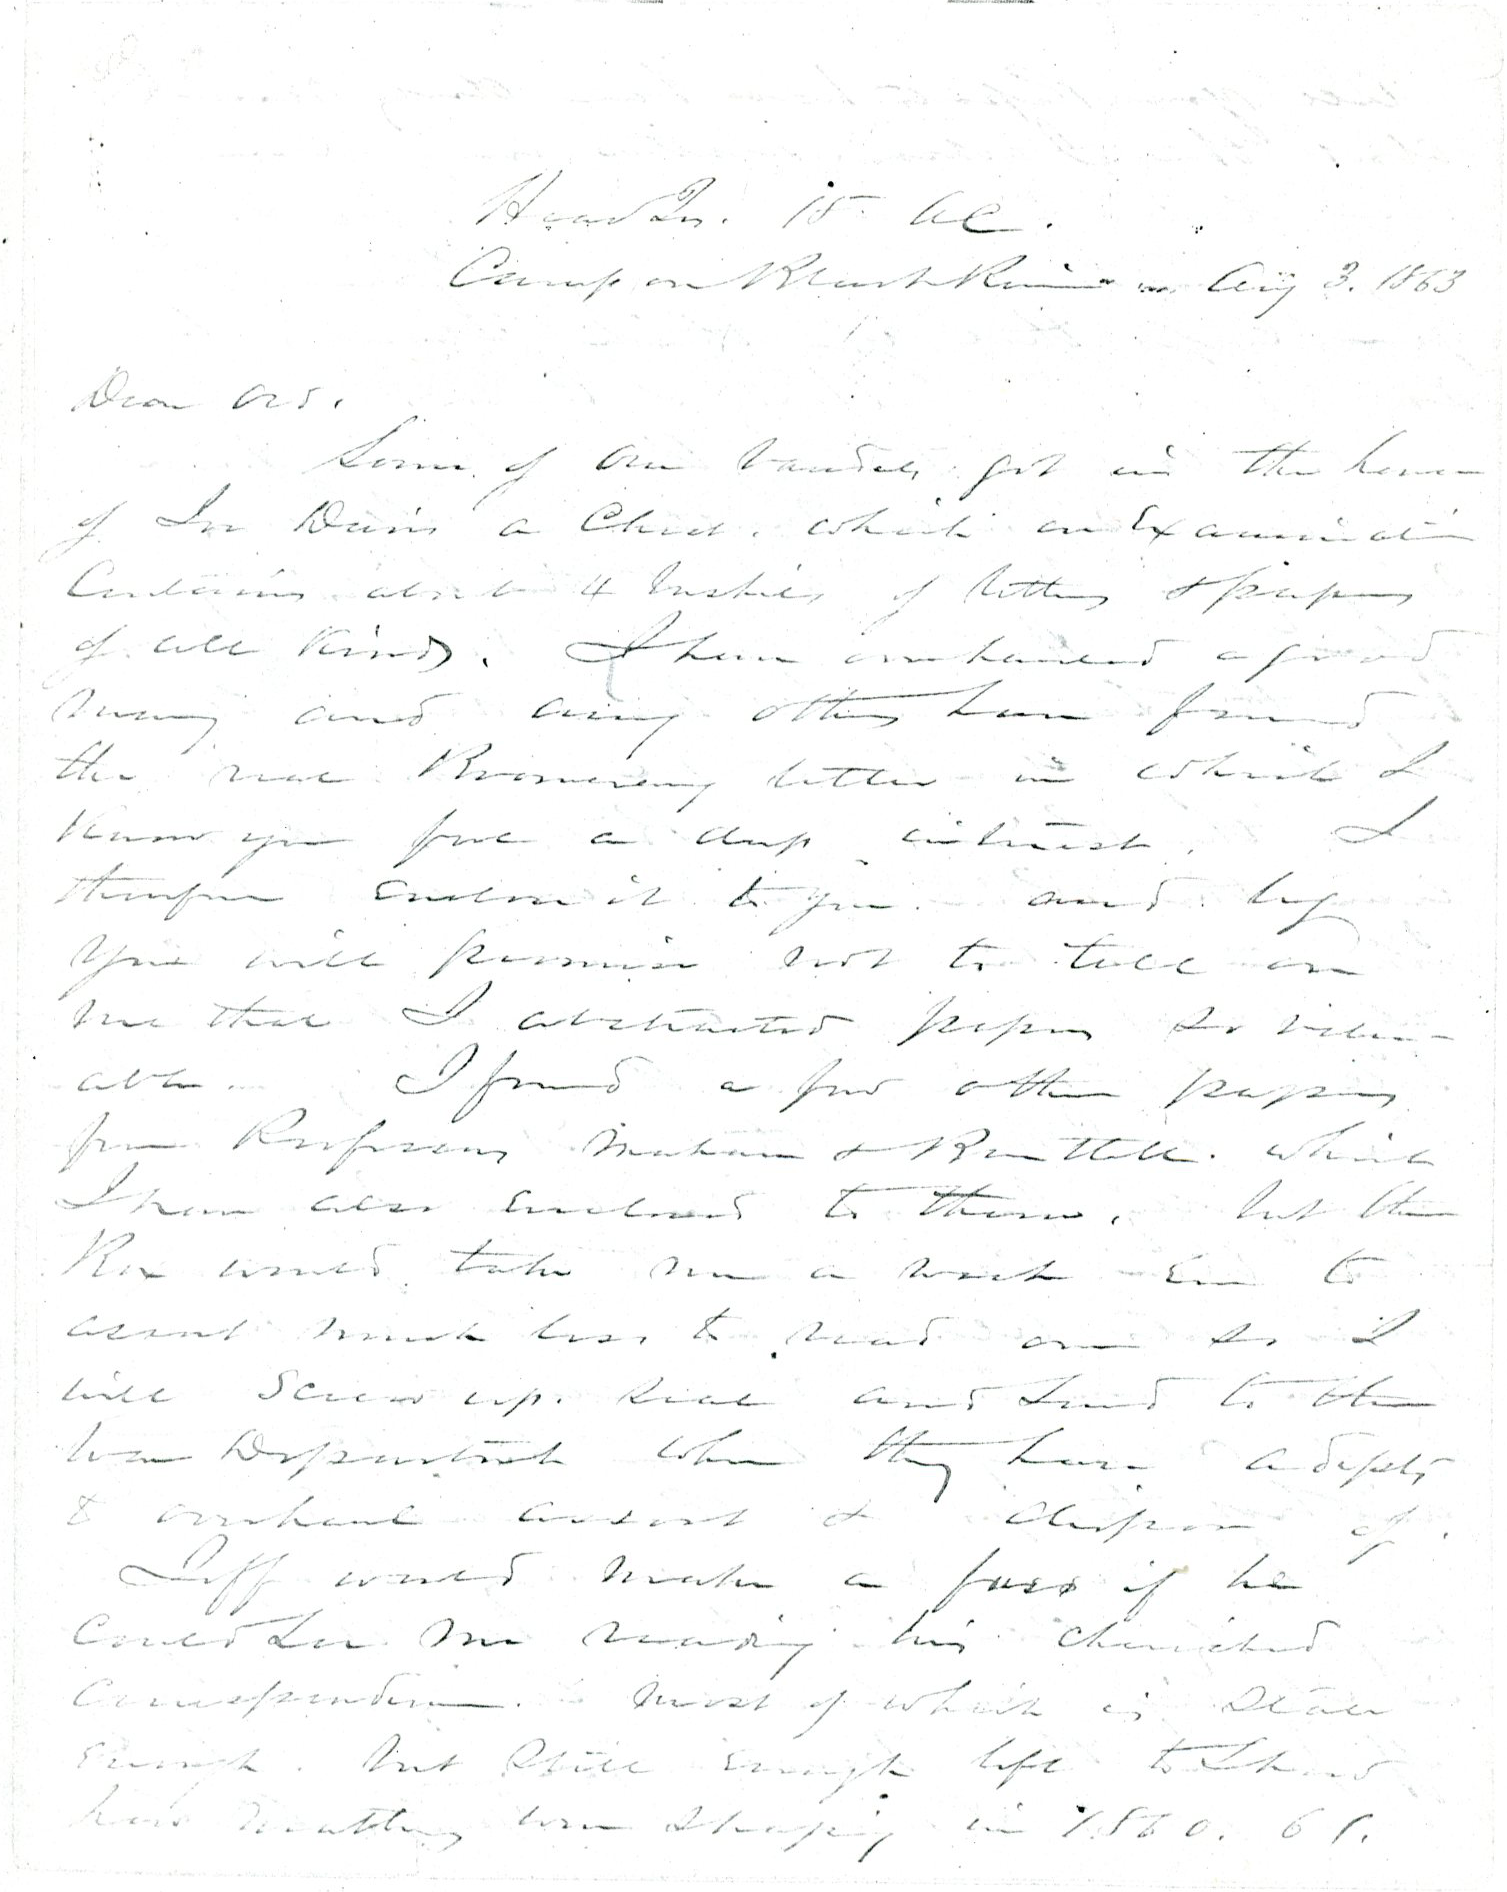 Head Qrs. 15 AC.
Camp on Black River Aug 3. 1863
Dear Ord.
Some of our vandals got in the house
of Jeff Davis a Chest. which on Examination
Contains about 4 bushels of letters & papers
of all kinds. I have overhauled a good
many and among others have found
the real letter in which I
Know you feel a deep interest. I
therefore Enclose it to you and beg
you will promise not to tell on
me that I abstracted papers so valu-
able. I found a few other papers
from Professors Mahan & Bartlett. which
I have also enclosed to them. but the
Box would take me a week Even to
assort much less to read over so I
will Screw up. Seal and Send to the
War Department where they have adepts
to overhaul assort & dispose of.
Jeff would make a fuss if he
Could See me reading his cherished
Correspondence. most of which is stale
Enough. but still enough left to Show
how matters were shaping in 1860. 61.